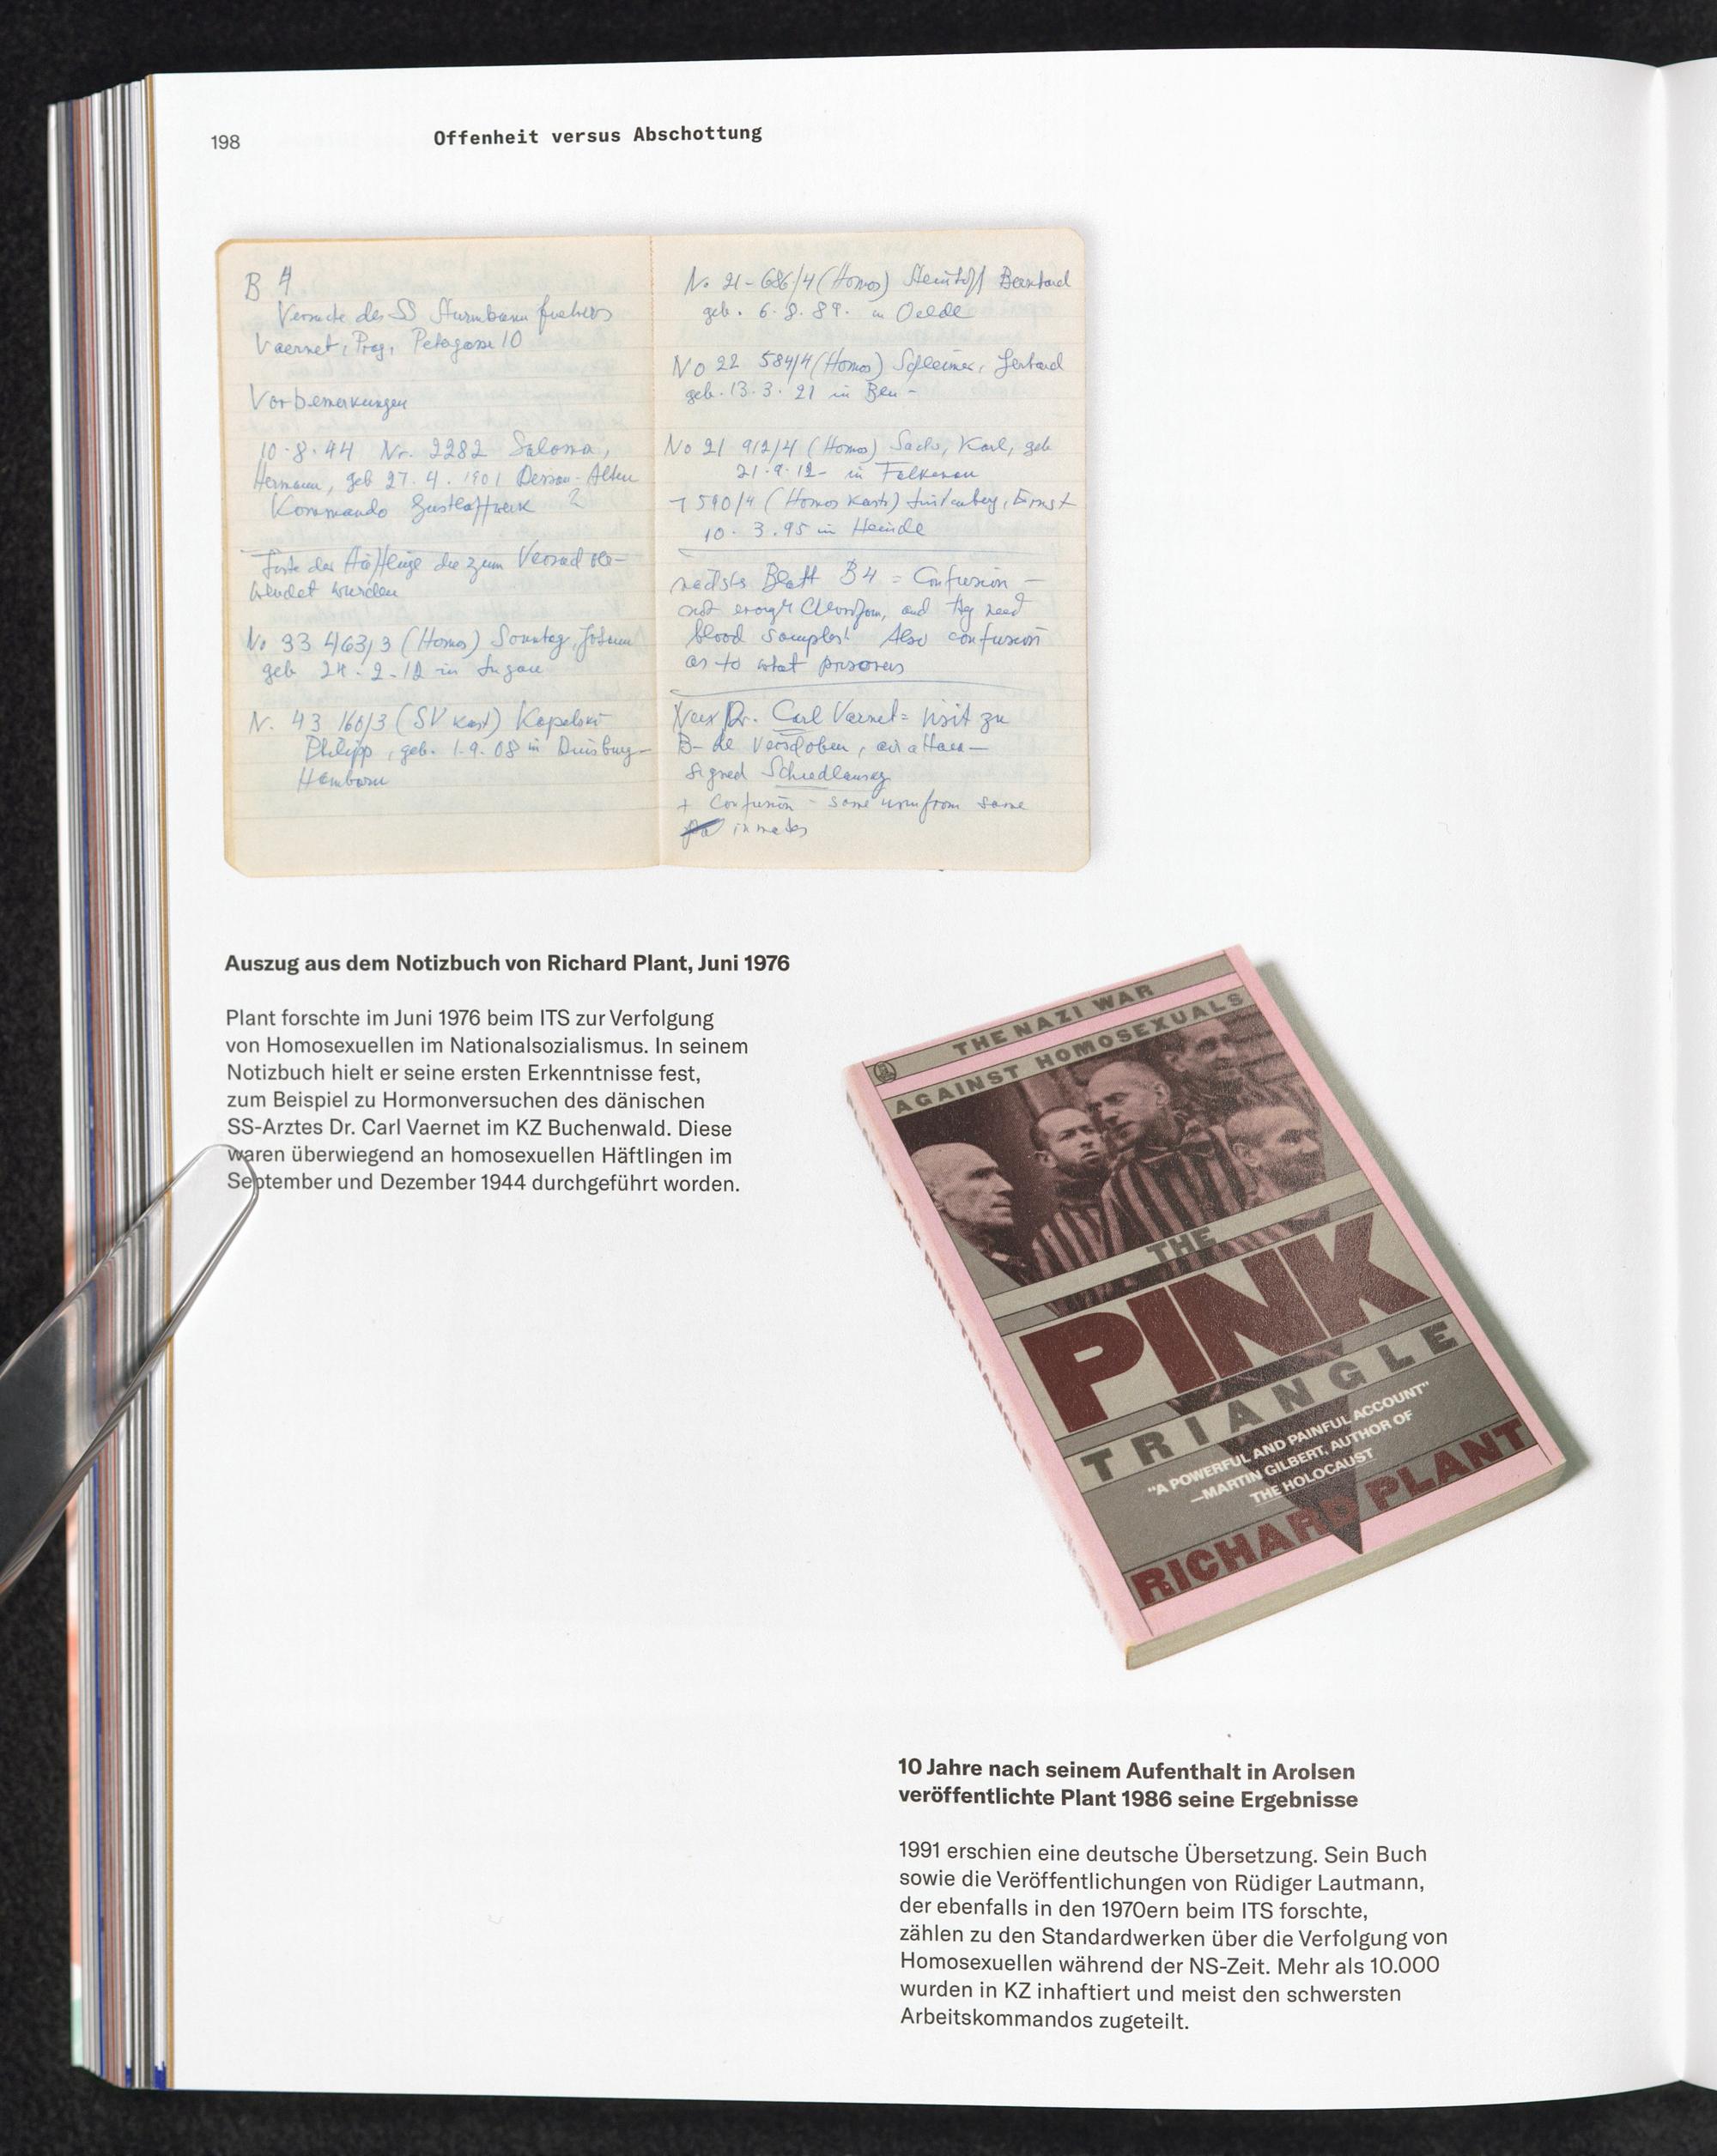 198
Offenheit versus Abschottung
B 4
Versuche des SS Sturmbann fuehrers
Vaernet, Prag, Petergasse 10
Vorbemerkungen
10.8.44 Nr. 2282 Saloma,
Hermann, geb 27.4.1901 Dessau-Alten
Kommando Gustloffwerk 2
Liste der Häftlinge die zum Versuch ver-
wendet wurden
No 33 463/3 (Homos) Sonntag,
geb 24.2.12 in Lugau
Nr. 43 160/3 (SV kast) Kapelski
Philipp, geb. 1.9.08 in Duisburg-
Hamborn
No 21-686/4 (Homos) Steinhoff Bernhard
geb. 6.8.89. in Oelde
No 22 584/4 (Homos) Schleimer, Gerhard
geb. 13.3.21 in
No 21 912/4 (Homos) Sachs, Karl, geb
21.9.12- in Falkenau
7590/4 (Homos Kastr) Lindenberg, Ernst
10.3.95 in Heinde
nächstes Blatt B4 = Confusion -
not enough and they need
blood samples! Also confusion
as to what prisoners
Dr. Carl Vaernet = Visit zu
B-
signed Schiedlausky
+ Confusion - some from some
inmates
Auszug aus dem Notizbuch von Richard Plant, Juni 1976
Plant forschte im Juni 1976 beim ITS zur Verfolgung
von Homosexuellen im Nationalsozialismus. In seinem
Notizbuch hielt er seine ersten Erkenntnisse fest,
zum Beispiel zu Hormonversuchen des dänischen
SS-Arztes Dr. Carl Vaernet im KZ Buchenwald. Diese
waren überwiegend an homosexuellen Häftlingen im
September und Dezember 1944 durchgeführt worden.
THE NAZI WAR
AGAINST HOMOSEXUALS
THE
PINK
TRIANGLE
"A POWERFUL AND PAINFUL ACCOUNT"
—MARTIN GILBERT, AUTHOR OF
THE HOLOCAUST
RICHARD PLANT
THE PINK TRIANGLE
10 Jahre nach seinem Aufenthalt in Arolsen
veröffentlichte Plant 1986 seine Ergebnisse
1991 erschien eine deutsche Übersetzung. Sein Buch
sowie die Veröffentlichungen von Rüdiger Lautmann,
der ebenfalls in den 1970ern beim ITS forschte,
zählen zu den Standardwerken über die Verfolgung von
Homosexuellen während der NS-Zeit. Mehr als 10.000
wurden in KZ inhaftiert und meist den schwersten
Arbeitskommandos zugeteilt.